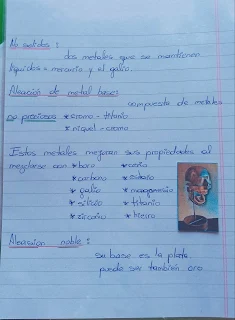 No solidos :
dos metales que se mantienen
liquidos = mercurio y el galio.
Aleación de metal bases
compuesta de metales
no preciosos * cromo - titanio
* niquel - cromo
Estos metales mejoran sus propiedades al
mezclarse con * boro * cerio
* carbono * cobalto
* galio * manganesio
* silicio * titanio
* zirconio * hierro
Aleacion noble :
su base es la plata
puede ser también oro